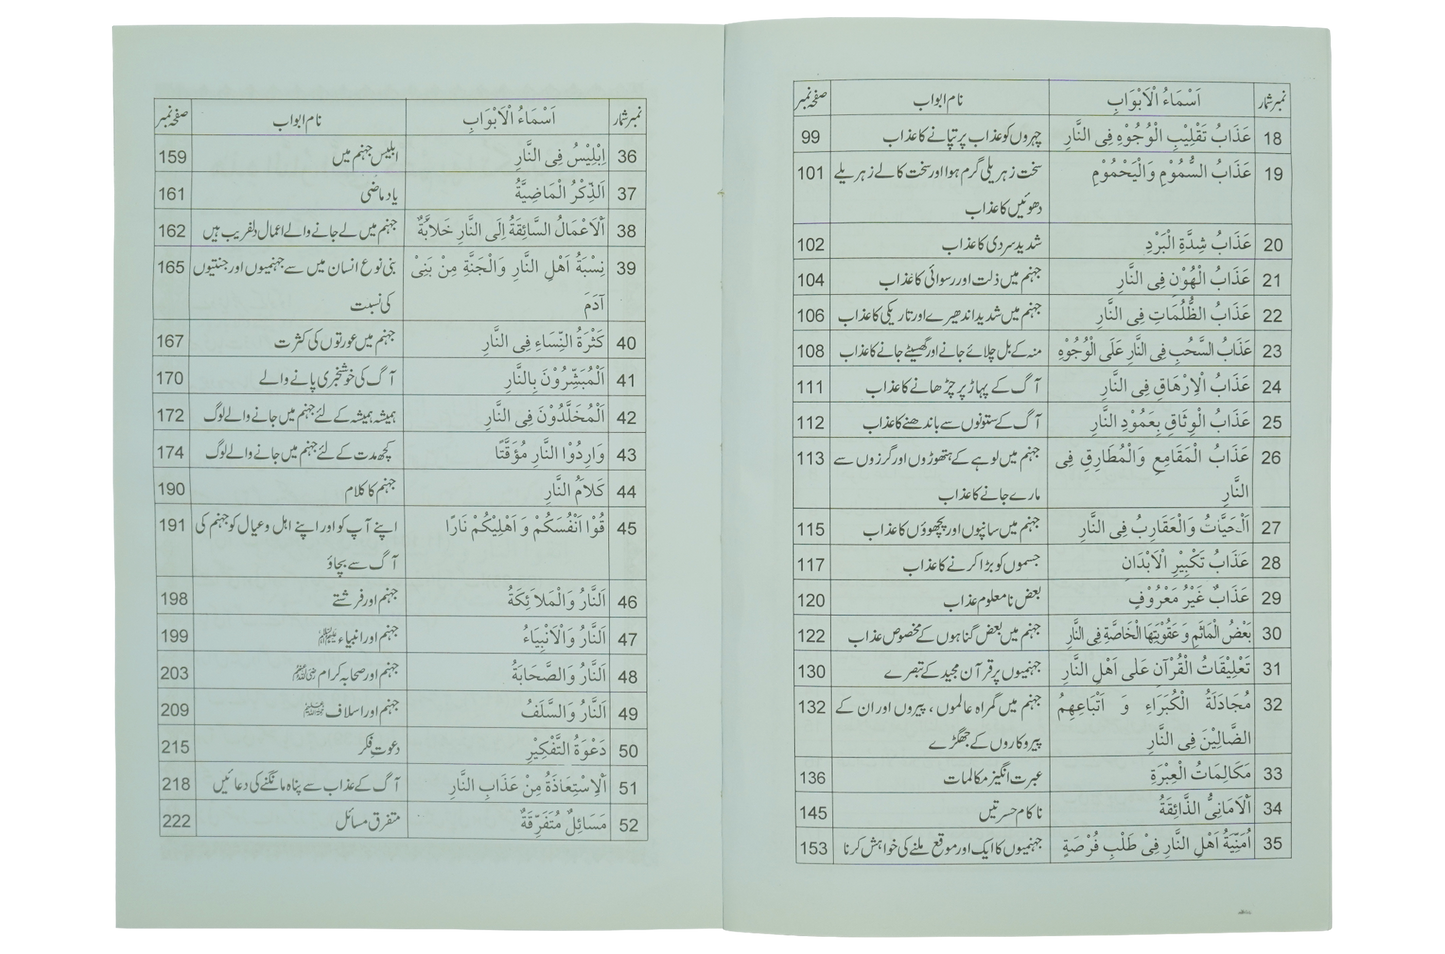 نمبر شمار اَسْمَاءُ الْاَبْوَابِ نام ابواب صفحہ نمبر
18 عَذَابُ تَقْلِيْبِ الْوُجُوْهِ فِى النَّارِ چہروں کو عذاب پر تپانے کا عذاب 99
19 عَذَابُ السُّمُوْمِ وَالْيَحْمُوْمِ سخت زہریلی گرم ہوا اور سخت کالے زہریلے 101
دھوئیں کا عذاب
20 عَذَابُ شِدَّةِ الْبَرْدِ شدید سردی کا عذاب 102
21 عَذَابُ الْهُوْنِ فِى النَّارِ جہنم میں ذلت اور رسوائی کا عذاب 104
22 عَذَابُ الظُّلُمَاتِ فِى النَّارِ جہنم میں شدید اندھیرے اور تاریکی کا عذاب 106
23 عَذَابُ السَّحْبِ فِى النَّارِ عَلَى الْوُجُوْهِ منہ کے بل چلائے جانے اور گھسیٹے جانے کا عذاب 108
24 عَذَابُ الْاِرْهَاقِ فِى النَّارِ آگ کے پہاڑ پر چڑھانے کا عذاب 111
25 عَذَابُ الْوِثَاقِ بِعَمُوْدِ النَّارِ آگ کے ستونوں سے باندھنے کا عذاب 112
26 عَذَابُ الْمَقَامِعِ وَالْمُطَارِقِ فِى جہنم میں لوہے کے ہتھوڑوں اور گرزوں سے 113
النَّارِ مارے جانے کا عذاب
27 اَلْحَيَّاتُ وَالْعَقَارِبُ فِى النَّارِ جہنم میں سانپوں اور بچھوؤں کا عذاب 115
28 عَذَابُ تَكْبِيْرِ الْاَبْدَانِ جسموں کو بڑا کرنے کا عذاب 117
29 عَذَابٌ غَيْرُ مَعْرُوْفٍ بعض نامعلوم عذاب 120
30 بَعْضُ الْمَاثِمِ وَ عَقُوْبَتِهَا الْخَاصَّةِ فِى النَّارِ جہنم میں بعض گناہوں کے مخصوص عذاب 122
31 تَعْلِيْقَاتُ الْقُرْآنِ عَلٰى اَهْلِ النَّارِ جہنمیوں پر قرآن مجید کے تبصرے 130
32 مُجَادَلَةُ الْكُبَرَاءِ وَ اَتْبَاعِهِمُ جہنم میں گمراہ عالموں ، پیروں اور ان کے 132
الضَّالِيْنَ فِى النَّارِ پیروکاروں کے جھگڑے
33 مَكَالِمَاتُ الْعِبْرَةِ عبرت انگیز مکالمات 136
34 اَلْاَمَانِىُّ الذَّائِقَةُ ناکام حسرتیں 145
35 اُمَنِّيَةُ اَهْلِ النَّارِ فِىْ طَلْبِ فُرْصَةٍ جہنمیوں کا ایک اور موقع ملنے کی خواہش کرنا 153
نمبر شمار اَسْمَاءُ الْاَبْوَابِ نام ابواب صفحہ نمبر
36 اِبْلِيْسُ فِى النَّارِ ابلیس جہنم میں 159
37 اَلذِّكْرُ الْمَاضِيَّةُ یاد ماضی 161
38 اَلْاَعْمَالُ السَّائِقَةُ اِلَى النَّارِ خَلابَّةٌ جہنم میں لے جانے والے اعمال دلفریب ہیں 162
39 نِسْبَةُ اَهْلِ النَّارِ وَالْجَنَّةِ مِنْ بَنِىْ بنی نوع انسان میں سے جہنمیوں اور جنتیوں 165
آدَمَ کی نسبت
40 كَثْرَةُ النِّسَاءِ فِى النَّارِ جہنم میں عورتوں کی کثرت 167
41 اَلْمُبَشِّرُوْنَ بِالنَّارِ آگ کی خوشخبری پانے والے 170
42 اَلْمُخَلَّدُوْنَ فِى النَّارِ ہمیشہ ہمیشہ کے لئے جہنم میں جانے والے لوگ 172
43 وَارِدُوْا النَّارِ مُؤَقَّتًا کچھ مدت کے لئے جہنم میں جانے والے لوگ 174
44 كَلَامُ النَّارِ جہنم کا کلام 190
45 قُوْا اَنْفُسَكُمْ وَ اَهْلِيْكُمْ نَارًا اپنے آپ کو اور اپنے اہل و عیال کو جہنم کی 191
آگ سے بچاؤ
46 اَلنَّارُ وَالْمَلَائِكَةُ جہنم اور فرشتے 198
47 اَلنَّارُ وَالْاَنْبِيَاءُ جہنم اور انبیاء 199
48 اَلنَّارُ وَالصَّحَابَةُ جہنم اور صحابہ کرام 203
49 اَلنَّارُ وَالسَّلَفُ جہنم اور اسلاف 209
50 دَعْوَةُ التَّفْكِيْرِ دعوتِ فکر 215
51 اَلْاِسْتِعَاذَةُ مِنْ عَذَابِ النَّارِ آگ کے عذاب سے پناہ مانگنے کی دعائیں 218
52 مَسَائِلٌ مُتَفَرِّقَةٌ متفرق مسائل 222